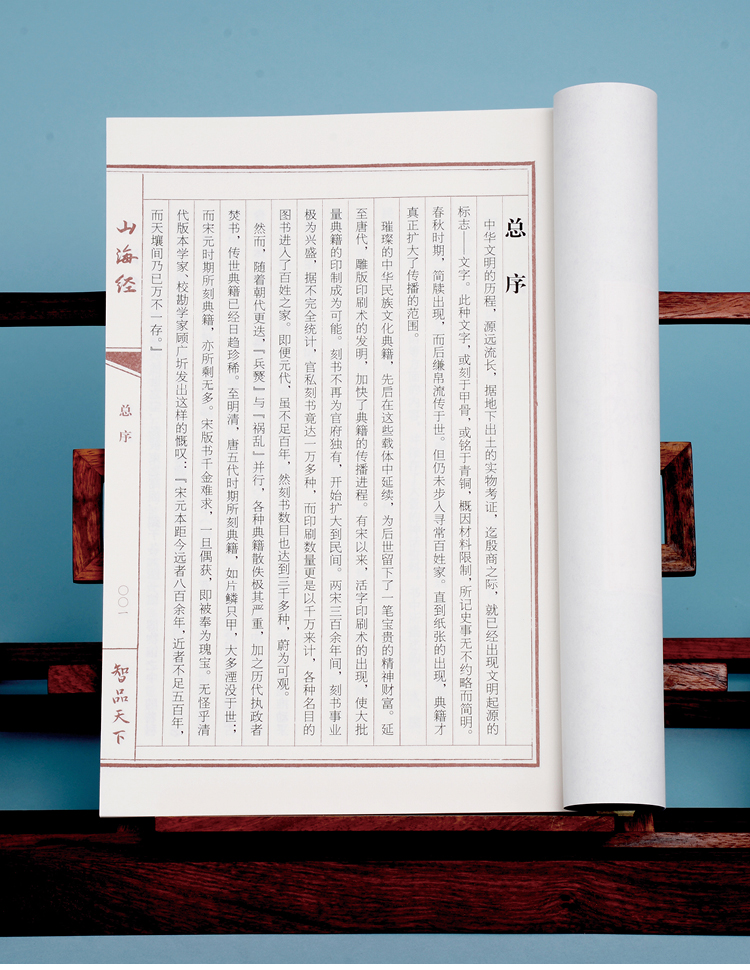 总序
中华文明的历程，源远流长，据地下出土的实物考证，迄殷商之际，就已经出现文明起源的
标志——文字。此种文字，或刻于甲骨，或铭于青铜，概因材料限制，所记史事无不约略而简明。
春秋时期，简牍出现，而后缣帛流传于世。但仍未步入寻常百姓家。直到纸张的出现，典籍才
真正扩大了传播的范围。
璀璨的中华民族文化典籍，先后在这些载体中延续，为后世留下了一笔宝贵的精神财富。延
至唐代，雕版印刷术的发明，加快了典籍的传播进程。有宋以来，活字印刷术的出现，使大批
量典籍的印制成为可能。刻书不再为官府独有，开始扩大到民间。两宋三百余年间，刻书事业
极为兴盛，据不完全统计，官私刻书竟达一万多种，而印刷数量更是以千万来计，各种名目的
图书进入了百姓之家。即便元代，虽不足百年，然刻书数目也达到三千多种，蔚为可观。
然而，随着朝代更迭，『兵燹』与『祸乱』并行，各种典籍散佚极其严重，加之历代执政者
焚书，传世典籍已经日趋珍稀。至明清，唐五代时期所刻典籍，如片鳞只甲，大多湮没于世；
而宋元时期所刻典籍，亦所剩无多。宋版书千金难求，一旦偶获，即被奉为瑰宝。无怪乎清
代版本学家、校勘学家顾广圻发出这样的慨叹：『宋元本距今远者八百余年，近者不足五百年，
而天壤间乃已万不一存。』
山海经
总序
〇〇一
智品天下